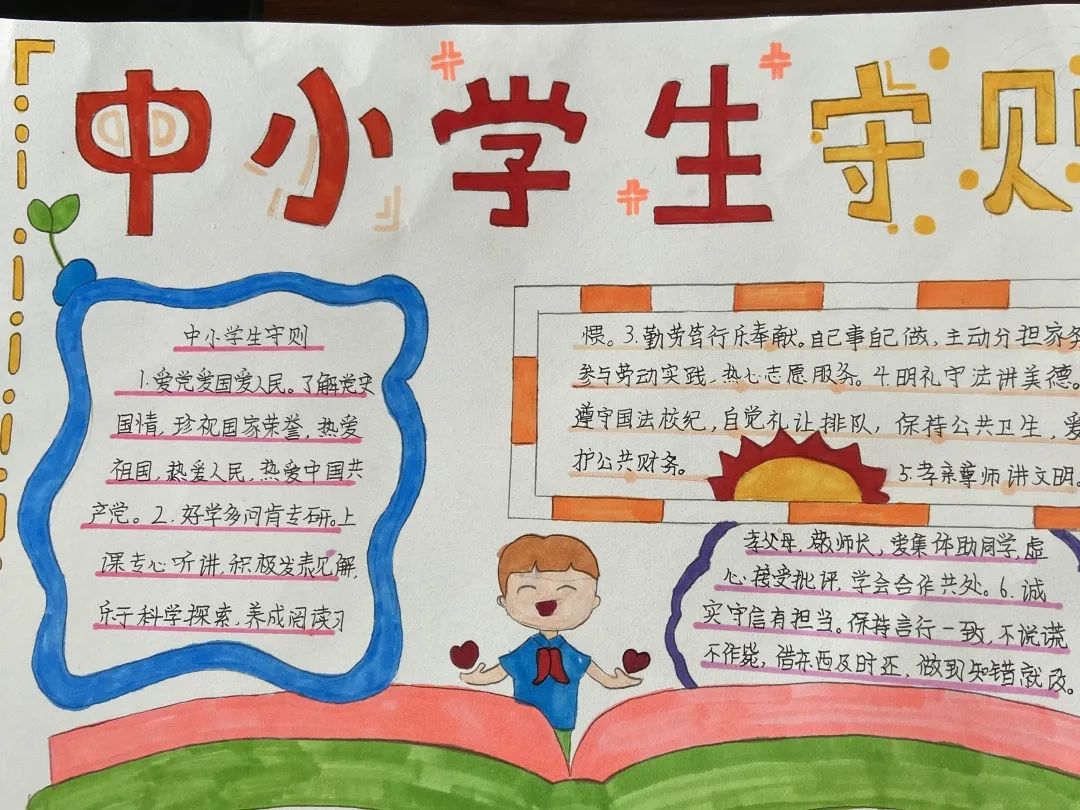 中小学生守则
中小学生守则
1.爱党爱国爱人民。了解党史
国情，珍视国家荣誉，热爱
祖国，热爱人民，热爱中国共
产党。2.好学多问肯专研。上
课专心听讲，积极发表见解，
乐于科学探索，养成阅读习
惯。3.勤劳笃行乐奉献。自己事自己做，主动分担家务
参与劳动实践，热心志愿服务。4.明礼守法讲美德。
遵守国法校纪，自觉礼让排队，保持公共卫生，爱
护公共财务。
5.孝亲尊师讲文明。
孝父母，敬师长，爱集体助同学，虚
心接受批评，学会合作共处。6.诚
实守信有担当。保持言行一致，不说谎
不作毙，借东西及时还，做到知错就改。